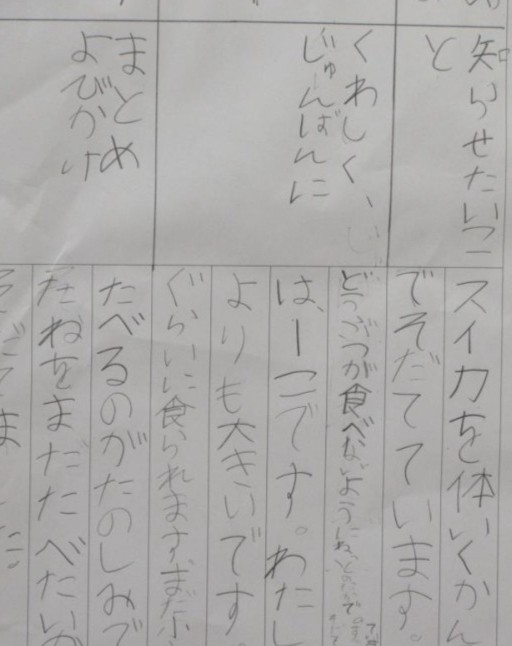 知らせたいこ
と
くわしく、
じゅんばんに
まとめ
よびかけ
スイカを体いくかん
でそだてています。
どうぶつが食べないように
は、一つです。わたし
よりも大きいです
ぐらいに食られます。まだ小
たべるのがたのしみで
たねをまだたべたいか